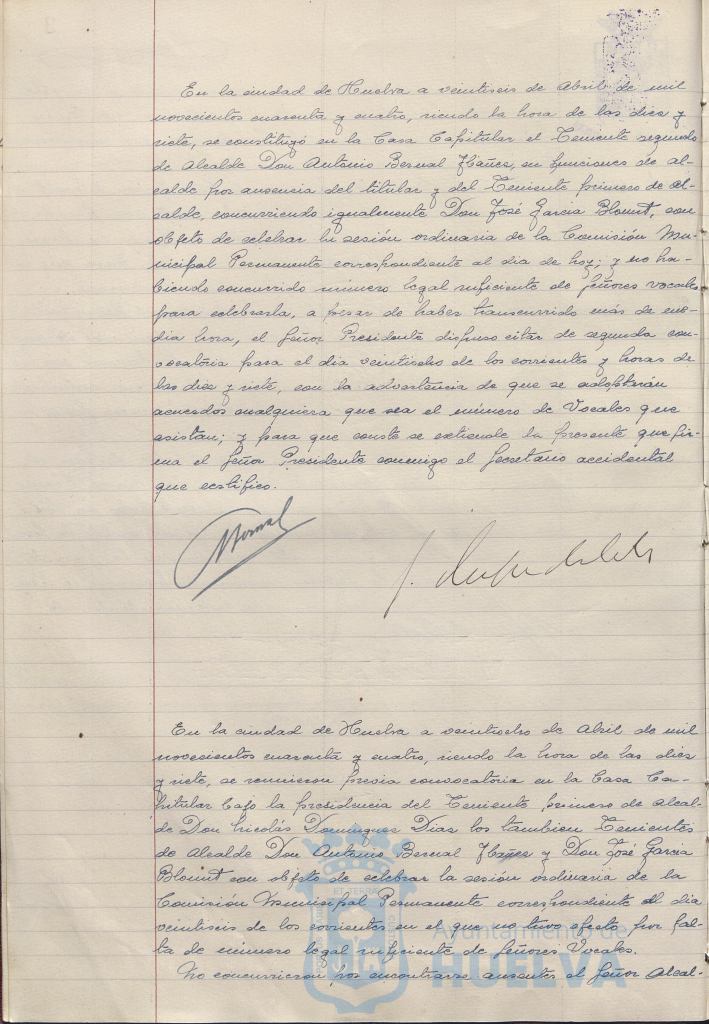 En la ciudad de Huelva a veintiseis de Abril de mil
novecientos cuarenta y cuatro, siendo la hora de las diez y
siete, se constituyó en la Casa Capitular el Teniente segundo
de Alcalde Don Antonio Bernal Ybañez, en funciones de al-
calde por ausencia del titular y del Teniente primero de al-
calde, concurriendo igualmente Don José Garcia Blount, con
objeto de celebrar la sesión ordinaria de la Comisión Mu-
nicipal Permanente correspondiente al dia de hoy; y no ha-
biendo concurrido número legal suficiente de Señores vocales
para celebrarla, a pesar de haber transcurrido más de me-
dia hora, el Señor Presidente dispuso citar de segunda con-
vocatoria para el dia veintiocho de los corrientes y horas de
las diez y siete, con la advertencia de que se adoptarán
acuerdos cualquiera que sea el número de Vocales que
asistan; y para que conste se extiende la presente que fir-
ma el Señor Presidente conmigo el Secretario accidental
que certifico.
ABernal
En la ciudad de Huelva a veintiocho de Abril de mil
novecientos cuarenta y cuatro, siendo la hora de las diez
y siete, se reunieron previa convocatoria en la Casa Ca-
pitular bajo la presidencia del Teniente primero de Alcal-
de Don Nicolás Dominguez Dias los tambien Tenientes
de Alcalde Don Antonio Bernal Ybañez y Don José Garcia
Blount con objeto de celebrar la sesión ordinaria de la
Comisión Municipal Permanente correspondiente al dia
veintiseis de los corrientes en el que no tuvo efecto por fal-
ta de número legal suficiente de Señores Vocales.
No concurrieron por encontrarse ausentes el Señor Alcal-
Ayuntamiento de
HUELVA